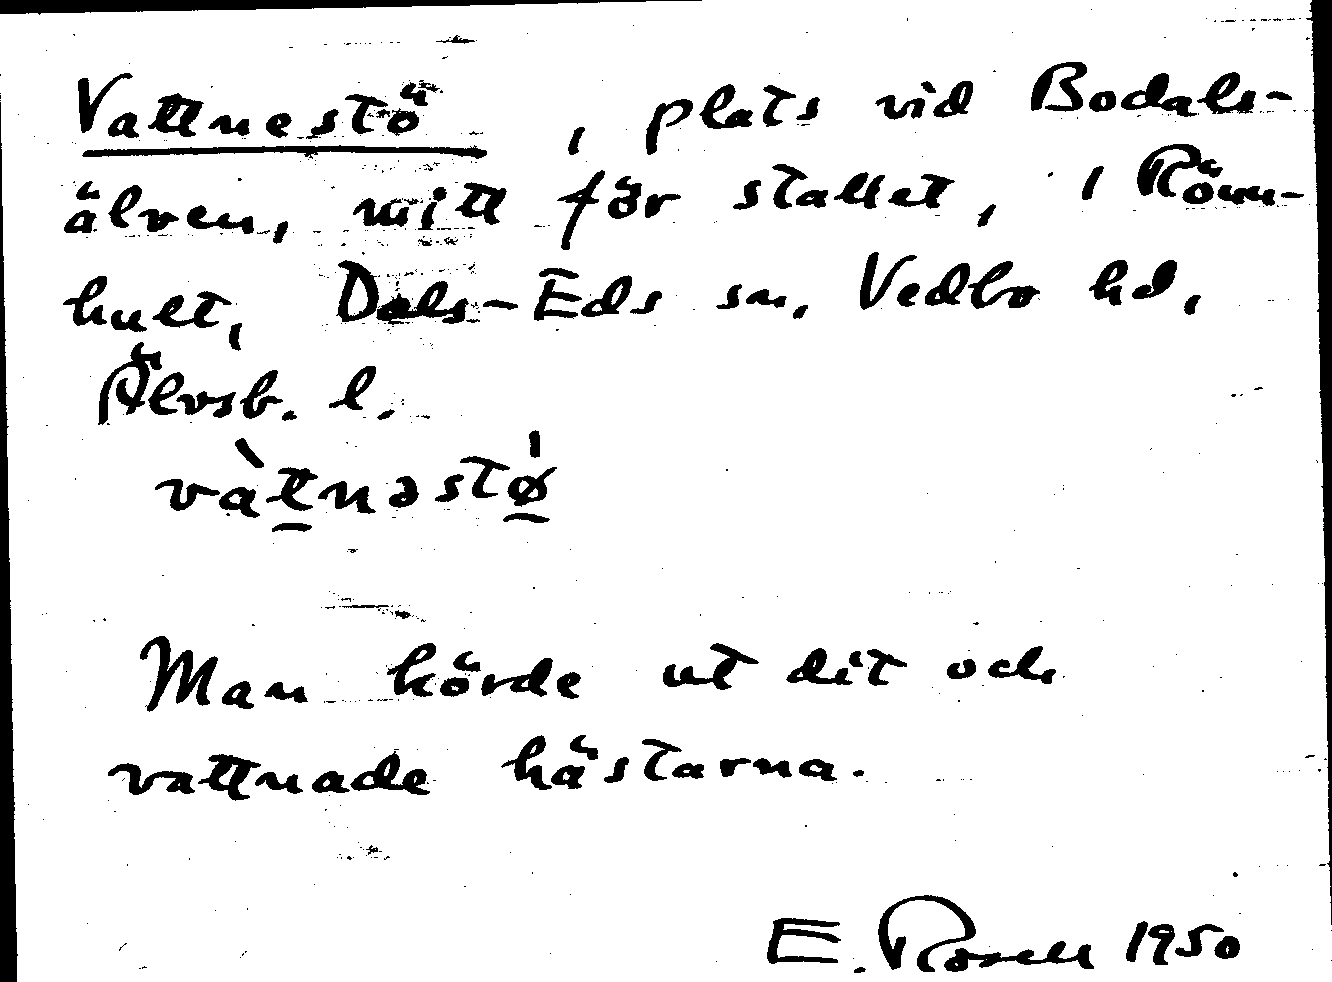 Vattnestö, plats vid Bodals-
älven, mitt för stallet, i Rönn-
hult, Dals-Eds sn, Vedbo hd,
Älvsb. l.
vàt̲nəstø̲̍
Man körde ut dit och
vattnade hästarna.
E. Rosell 1950